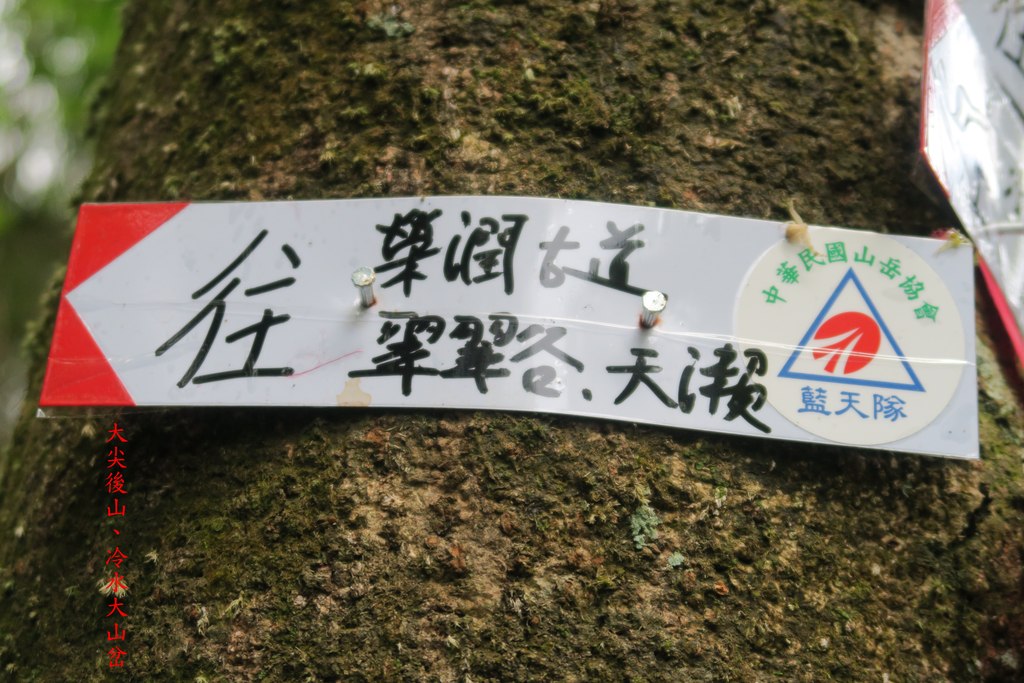 往
榮潤古道
翠翠谷、天瀨
中華民國山岳協會
藍天隊
大尖後山、冷水大山岔